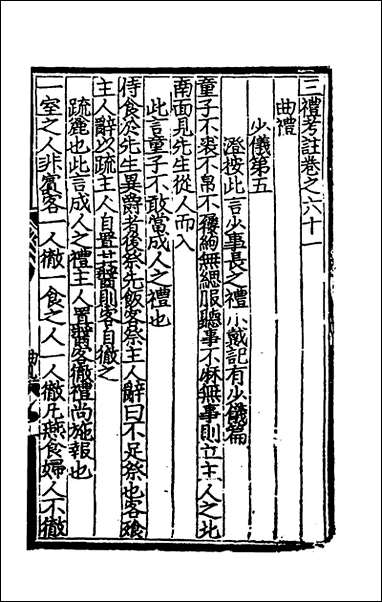 三禮考註卷之六十一
曲禮
少儀第五
澄按此言少事長之禮小戴記有少儀篇
童子不裘不帛不屨絇無緦服聽事不麻無事則立主人之北
南面見先生從人而入
此言童子不敢當成人之禮也
侍食於先生異爵者後祭先飯客祭主人辭曰不足祭也客飧
主人辭以疏主人自置其醬則客自徹之
疏麄也此言成人之禮主人置醬客徹禮尚施報也
一室之人非賓客一人徹一食之人一人徹凡燕食婦人不徹